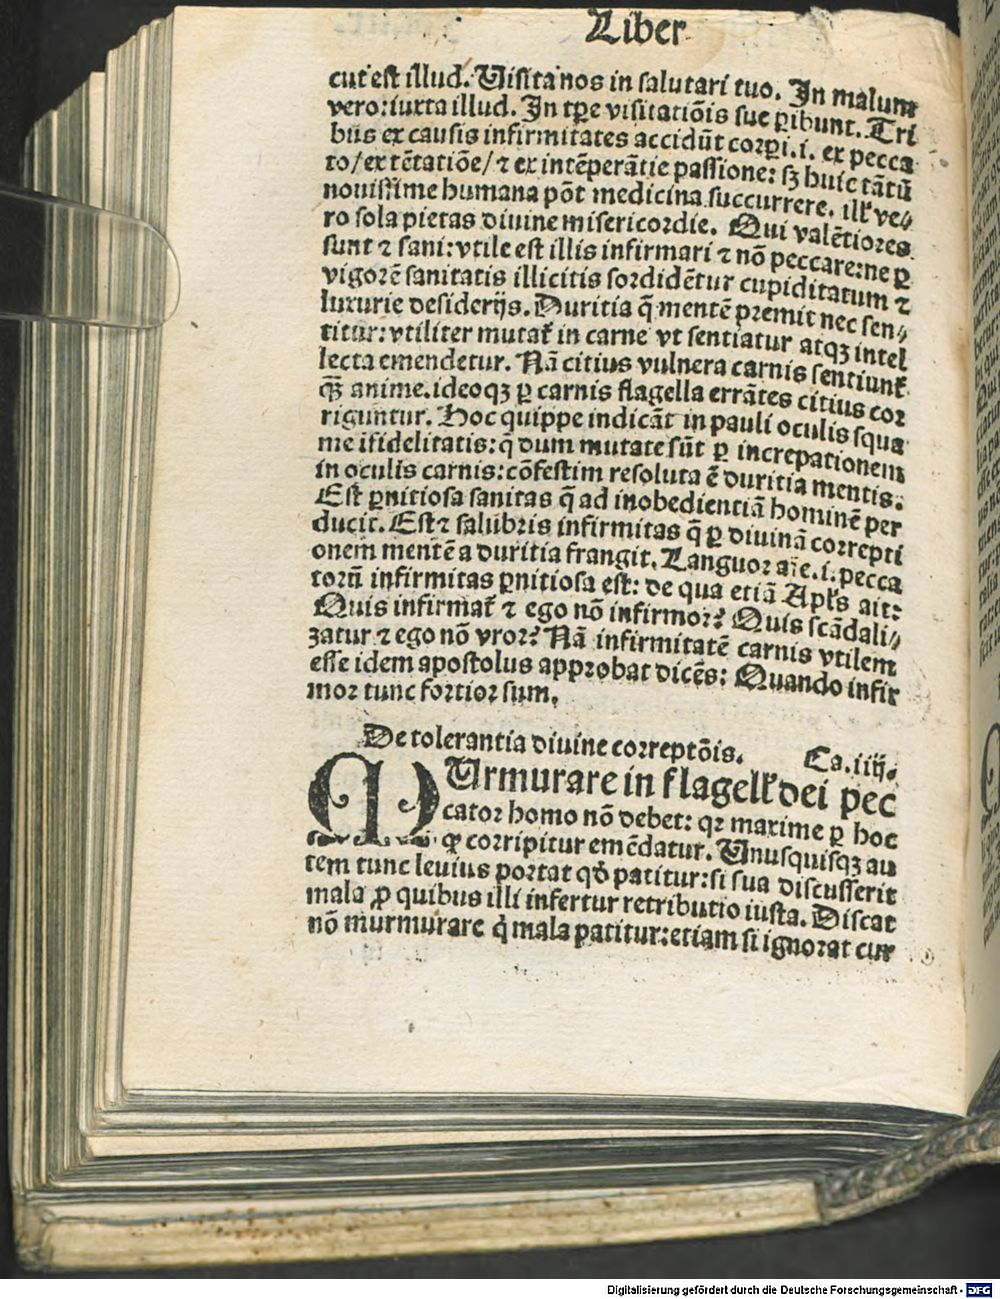 Liber
cut est illud. Uisita nos in salutari tuo. In malum
vero: iuxta illud. In tp̄e visitatiōis sue ꝑibunt. Tri
bus ex causis infirmitates accidūt corꝑi. i. ex pecca
to/ ex tētatiōe/ ⁊ ex intēperātie passione: sꝫ huic tātū
nouissime humana pōt medicina succurrere. illꝭ ve⸗
ro sola pietas diuine misericordie. Qui valētiores
sunt ⁊ sani: vtile est illis infirmari ⁊ nō peccare: ne ꝑ
vigorē sanitatis illicitis sordidētur cupiditatum ⁊
luxurie desiderijs. Duritia q̄ mentē premit nec sen⸗
titur: vtiliter mutat̄ in carne vt sentiatur atqꝫ intel
lecta emendetur. Nā citius vulnera carnis sentiunt̄
qꝫ̄ anime. ideoqꝫ ꝑ carnis flagella errātes citius cor
riguntur. Hoc quippe indicāt in pauli oculis squa
me īfidelitatis: q̄ dum mutate sūt ꝑ increpationem
in oculis carnis: cōfestim resoluta ē duritia mentis.
Est ꝑnitiosa sanitas q̄ ad inobedientiā hominē per
ducit. Est ⁊ salubris infirmitas q̄ ꝑ diuinā correpti
onem mentē a duritia frangit. Languor aīe. i. pecca
torū infirmitas ꝑnitiosa est: de qua etiā Apl̄s ait:
Quis infirmat̄ ⁊ ego nō infirmor? Quis scādali⸗
zatur ⁊ ego nō vror? Nā infirmitatē carnis vtilem
esse idem apostolus approbat dicēs: Quando infir
mor tunc fortior sum.
De tolerantia diuine correptōis. Ca. iiij.
MUrmurare in flagellꝭ dei pec
cator homo nō debet: qꝛ maxime ꝑ hoc
ꝙ corripitur emēdatur. Unusquisqꝫ au
tem tunc leuius portat qd̄ patitur: si sua discusserit
mala ꝓ quibus illi infertur retributio iusta. Discat
nō murmurare q̇ mala patitur: etiam si ignorat cur
Digitalisierung gefördert durch die Deutsche Forschungsgemeinschaft - DFG